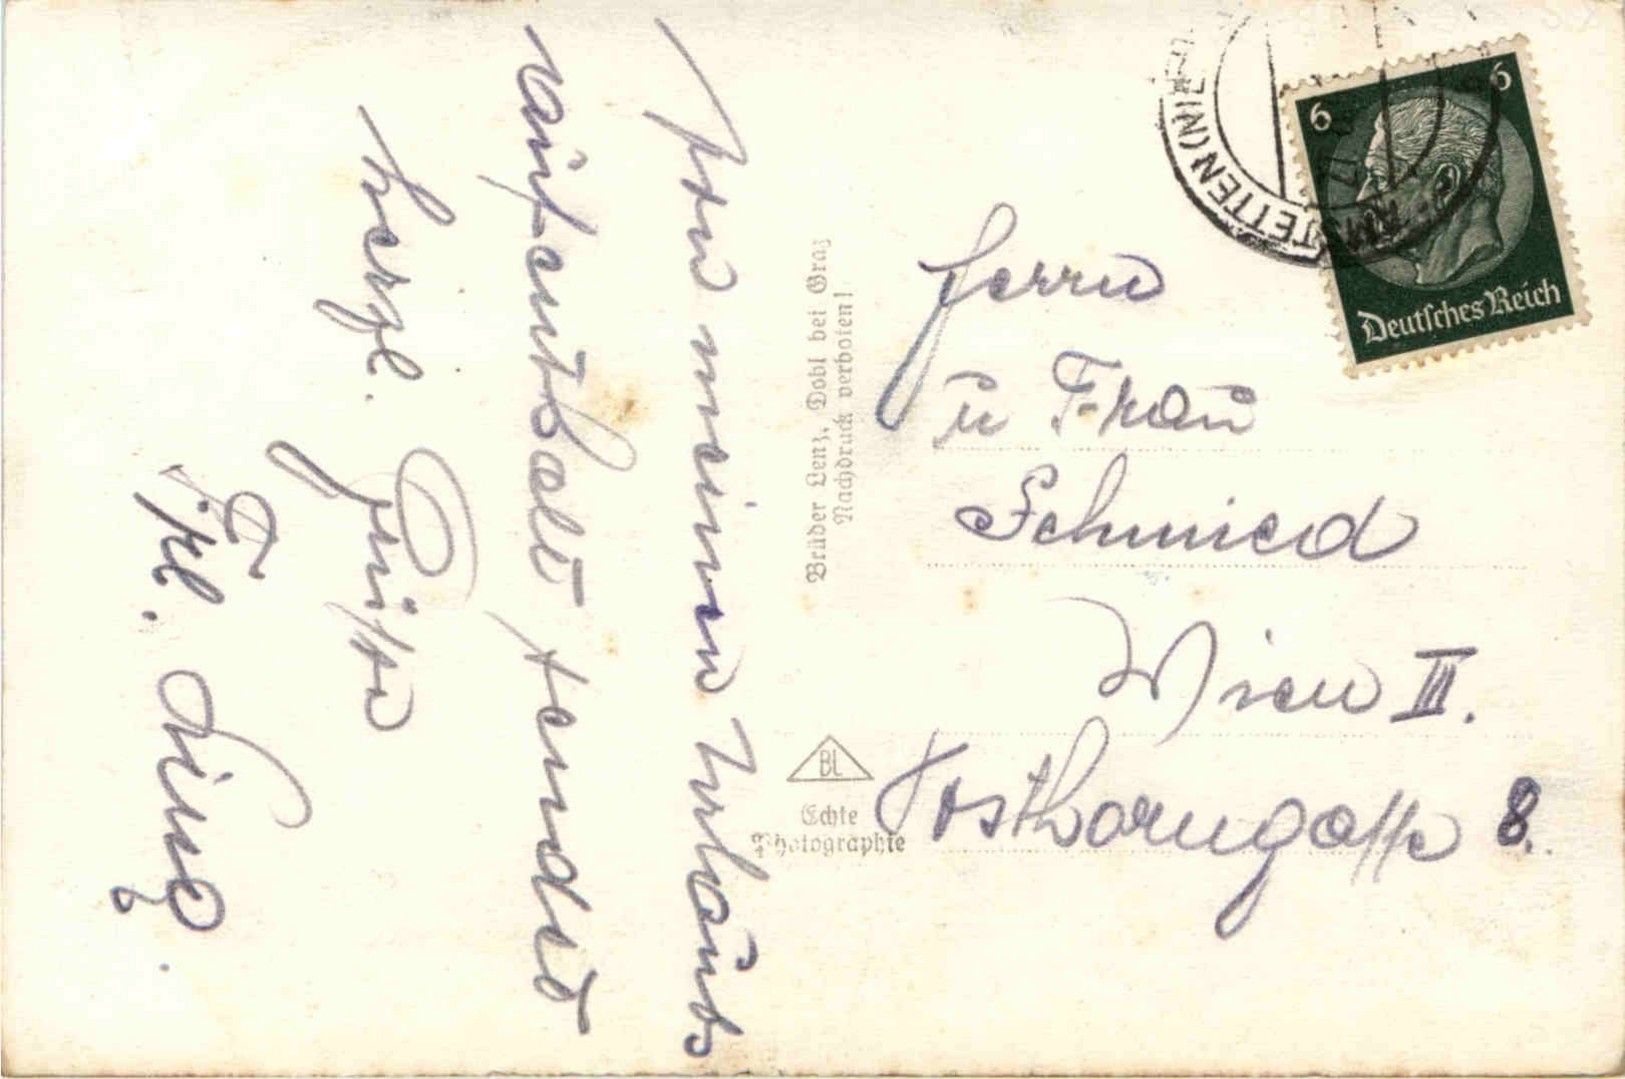 Von meinem Urlaubs
aufenthalt sendet
herzl. Grüße
Frl.
Brüder Lenz, Dobl bei Graz
Nachdruck verboten!
BL
Echte
Photographie
6
6
Deutsches Reich
AMSTETTEN (NIE
Herrn
u Frau
Schmied
Wien III.
Posthorngasse 8.